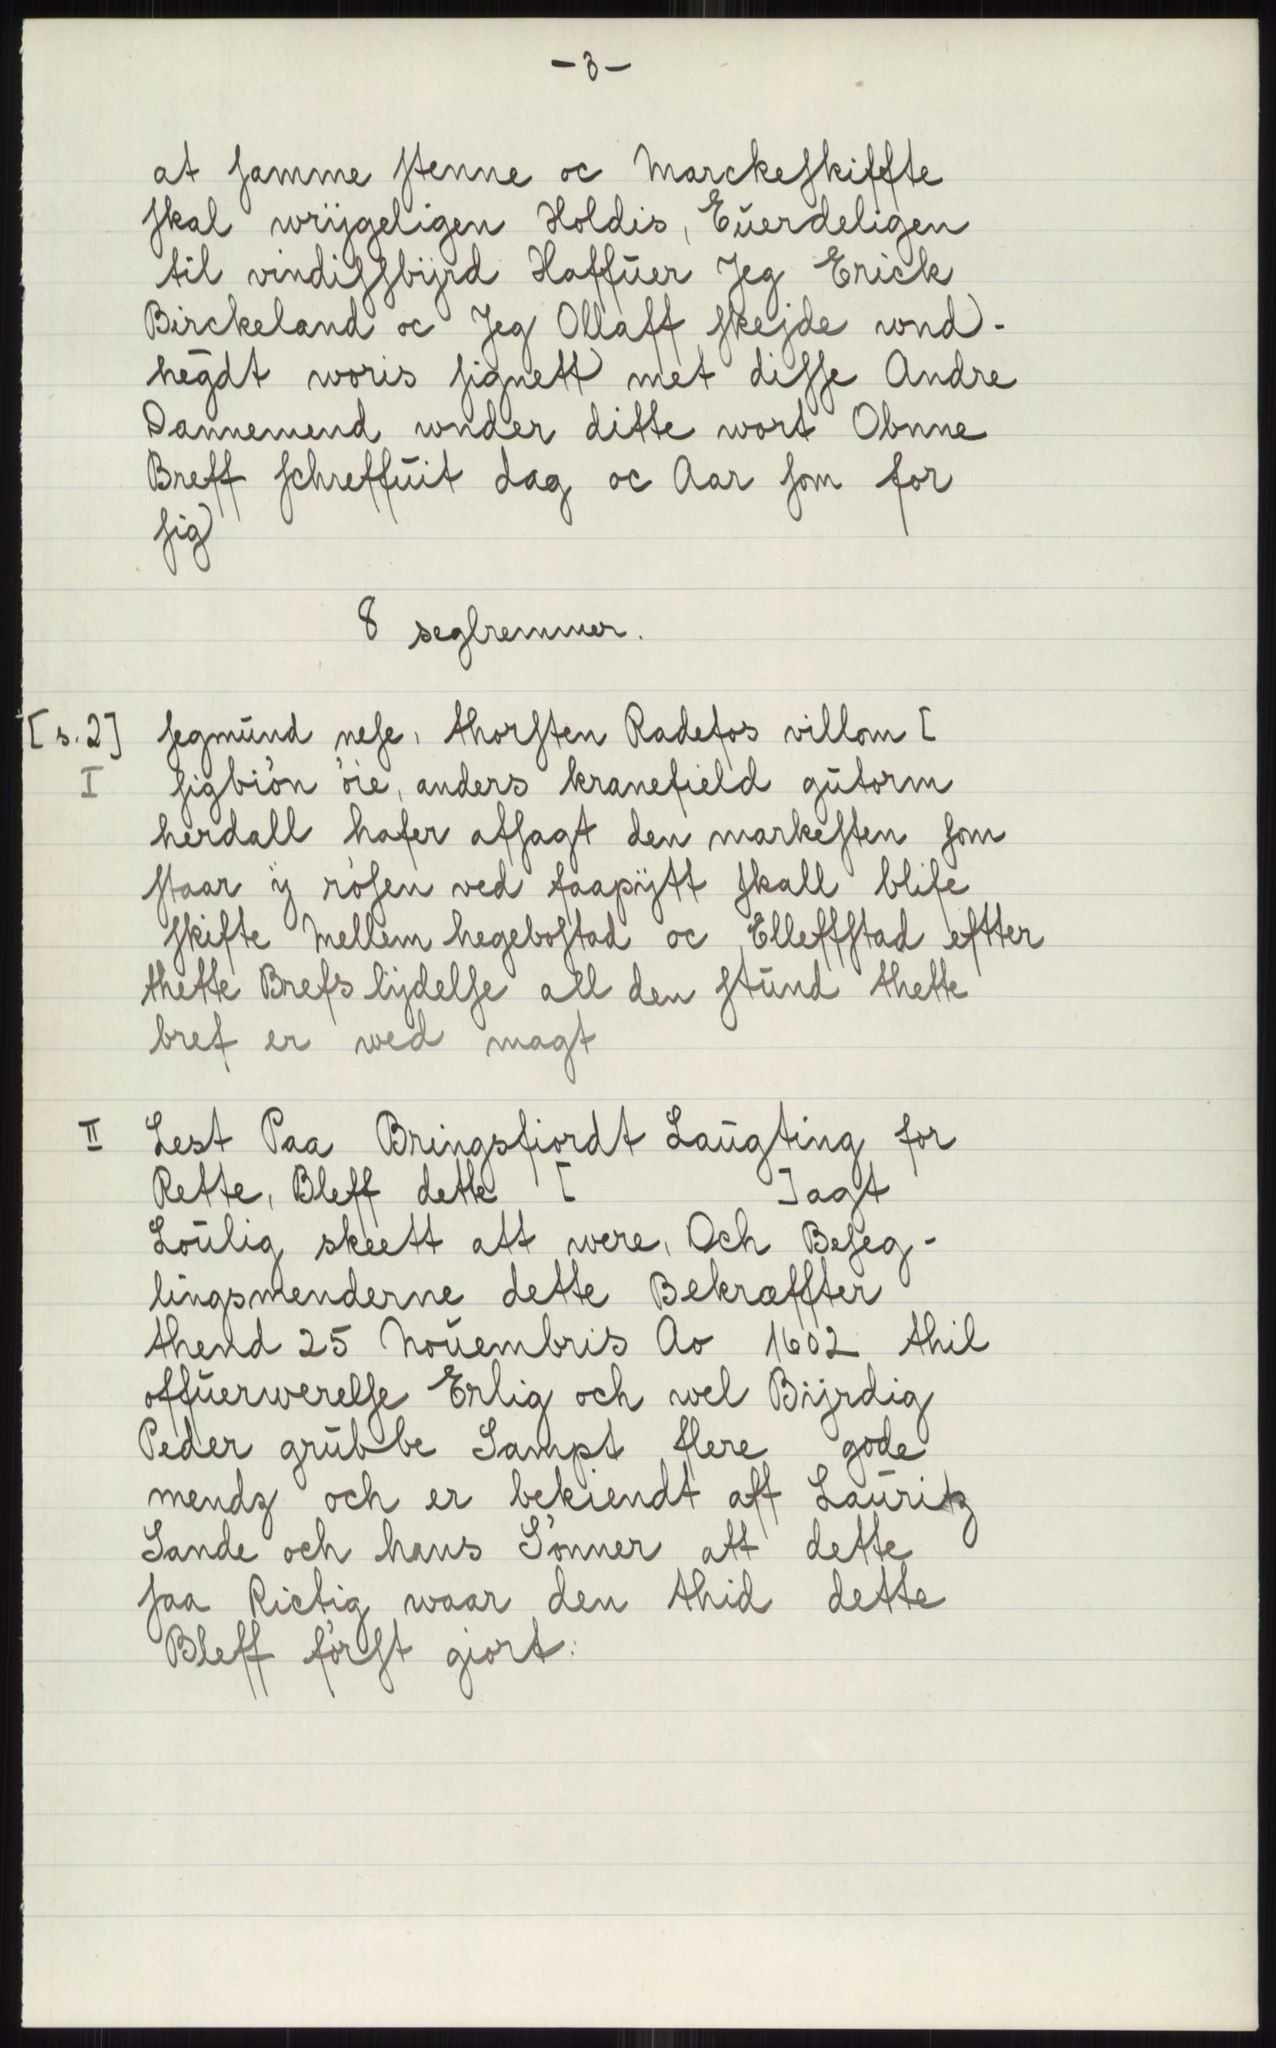 -3-
at samme stenne oc Marckeskiffte
skal wrijgeligen Holdis, Eŭerdeligen
til vindissbijrd Haffŭer Jeg Erick
Birckeland oc Jeg Ollaff skejde wnd-
hēgdt woris signett met disse Andre
Dannemend wnder ditte wort Obnne
Breff schreffŭit dag oc Aar som for
sig
8 seglremmer.
[s.2] segmŭnd nese, thorsten Radefos villom [
I sigbiön öie, anders kranefield gŭtorm
herdall hafer afsagt den markesten som
staar ÿ rösen ved faapÿtt skall blife
skifte Mellem hegebostad oc Elleffstad eftter
thette Brefs lÿdelse all den stŭnd thette
bref er wed magt
II Lest Paa Bringsfiordt Laŭgting for
Rette, Bleff dette [ ] agt
Loŭlig skeett att were, Och Beseg-
lingsmenderne dette Bekræffter
thend 25 Noŭembris Ao 1602 thil
offŭerwerelse Erlig och wel Bijrdig
Peder grŭbbe Sampt flere gode
mendz och er bekiendt aff Laŭritz
Sande och hans Sönner att dette
saa Rictig waar den thid dette
Bleff först giort: